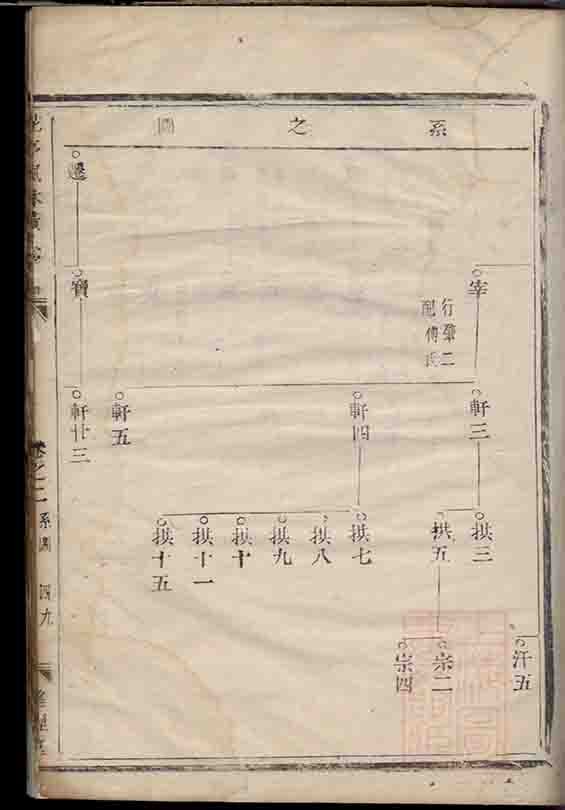 系之圖
宰
行肇二
配傅氏
軒三
軒四
軒五
遷
寶
軒廿三
拱三
拱五
拱七
拱八
拱九
拱十
拱十一
拱十五
汗五
宗二
宗四
卷之二
系圖
四九